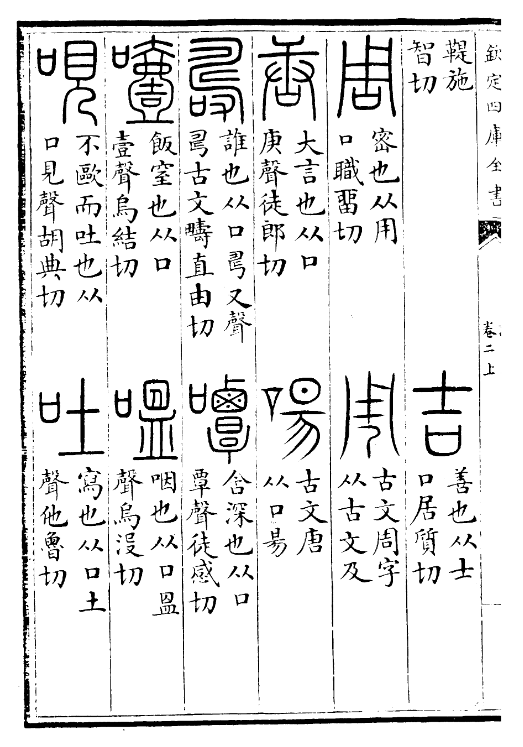 欽定四庫全書
卷二上
鞮施智切
吉 善也从士口居質切
周 密也从用口職畱切
𠄗 古文周字从古文及
唐 大言也从口庚聲徒郎切
啺 古文唐从口昜
𠷎 誰也从口𠃬又聲𠃬古文疇直由切
嘾 含深也从口覃聲徒感切
噎 飯窒也从口壹聲烏結切
嗢 咽也从口𥁕聲烏没切
哯 不歐而吐也从口見聲胡典切
吐 寫也从口土聲他魯切